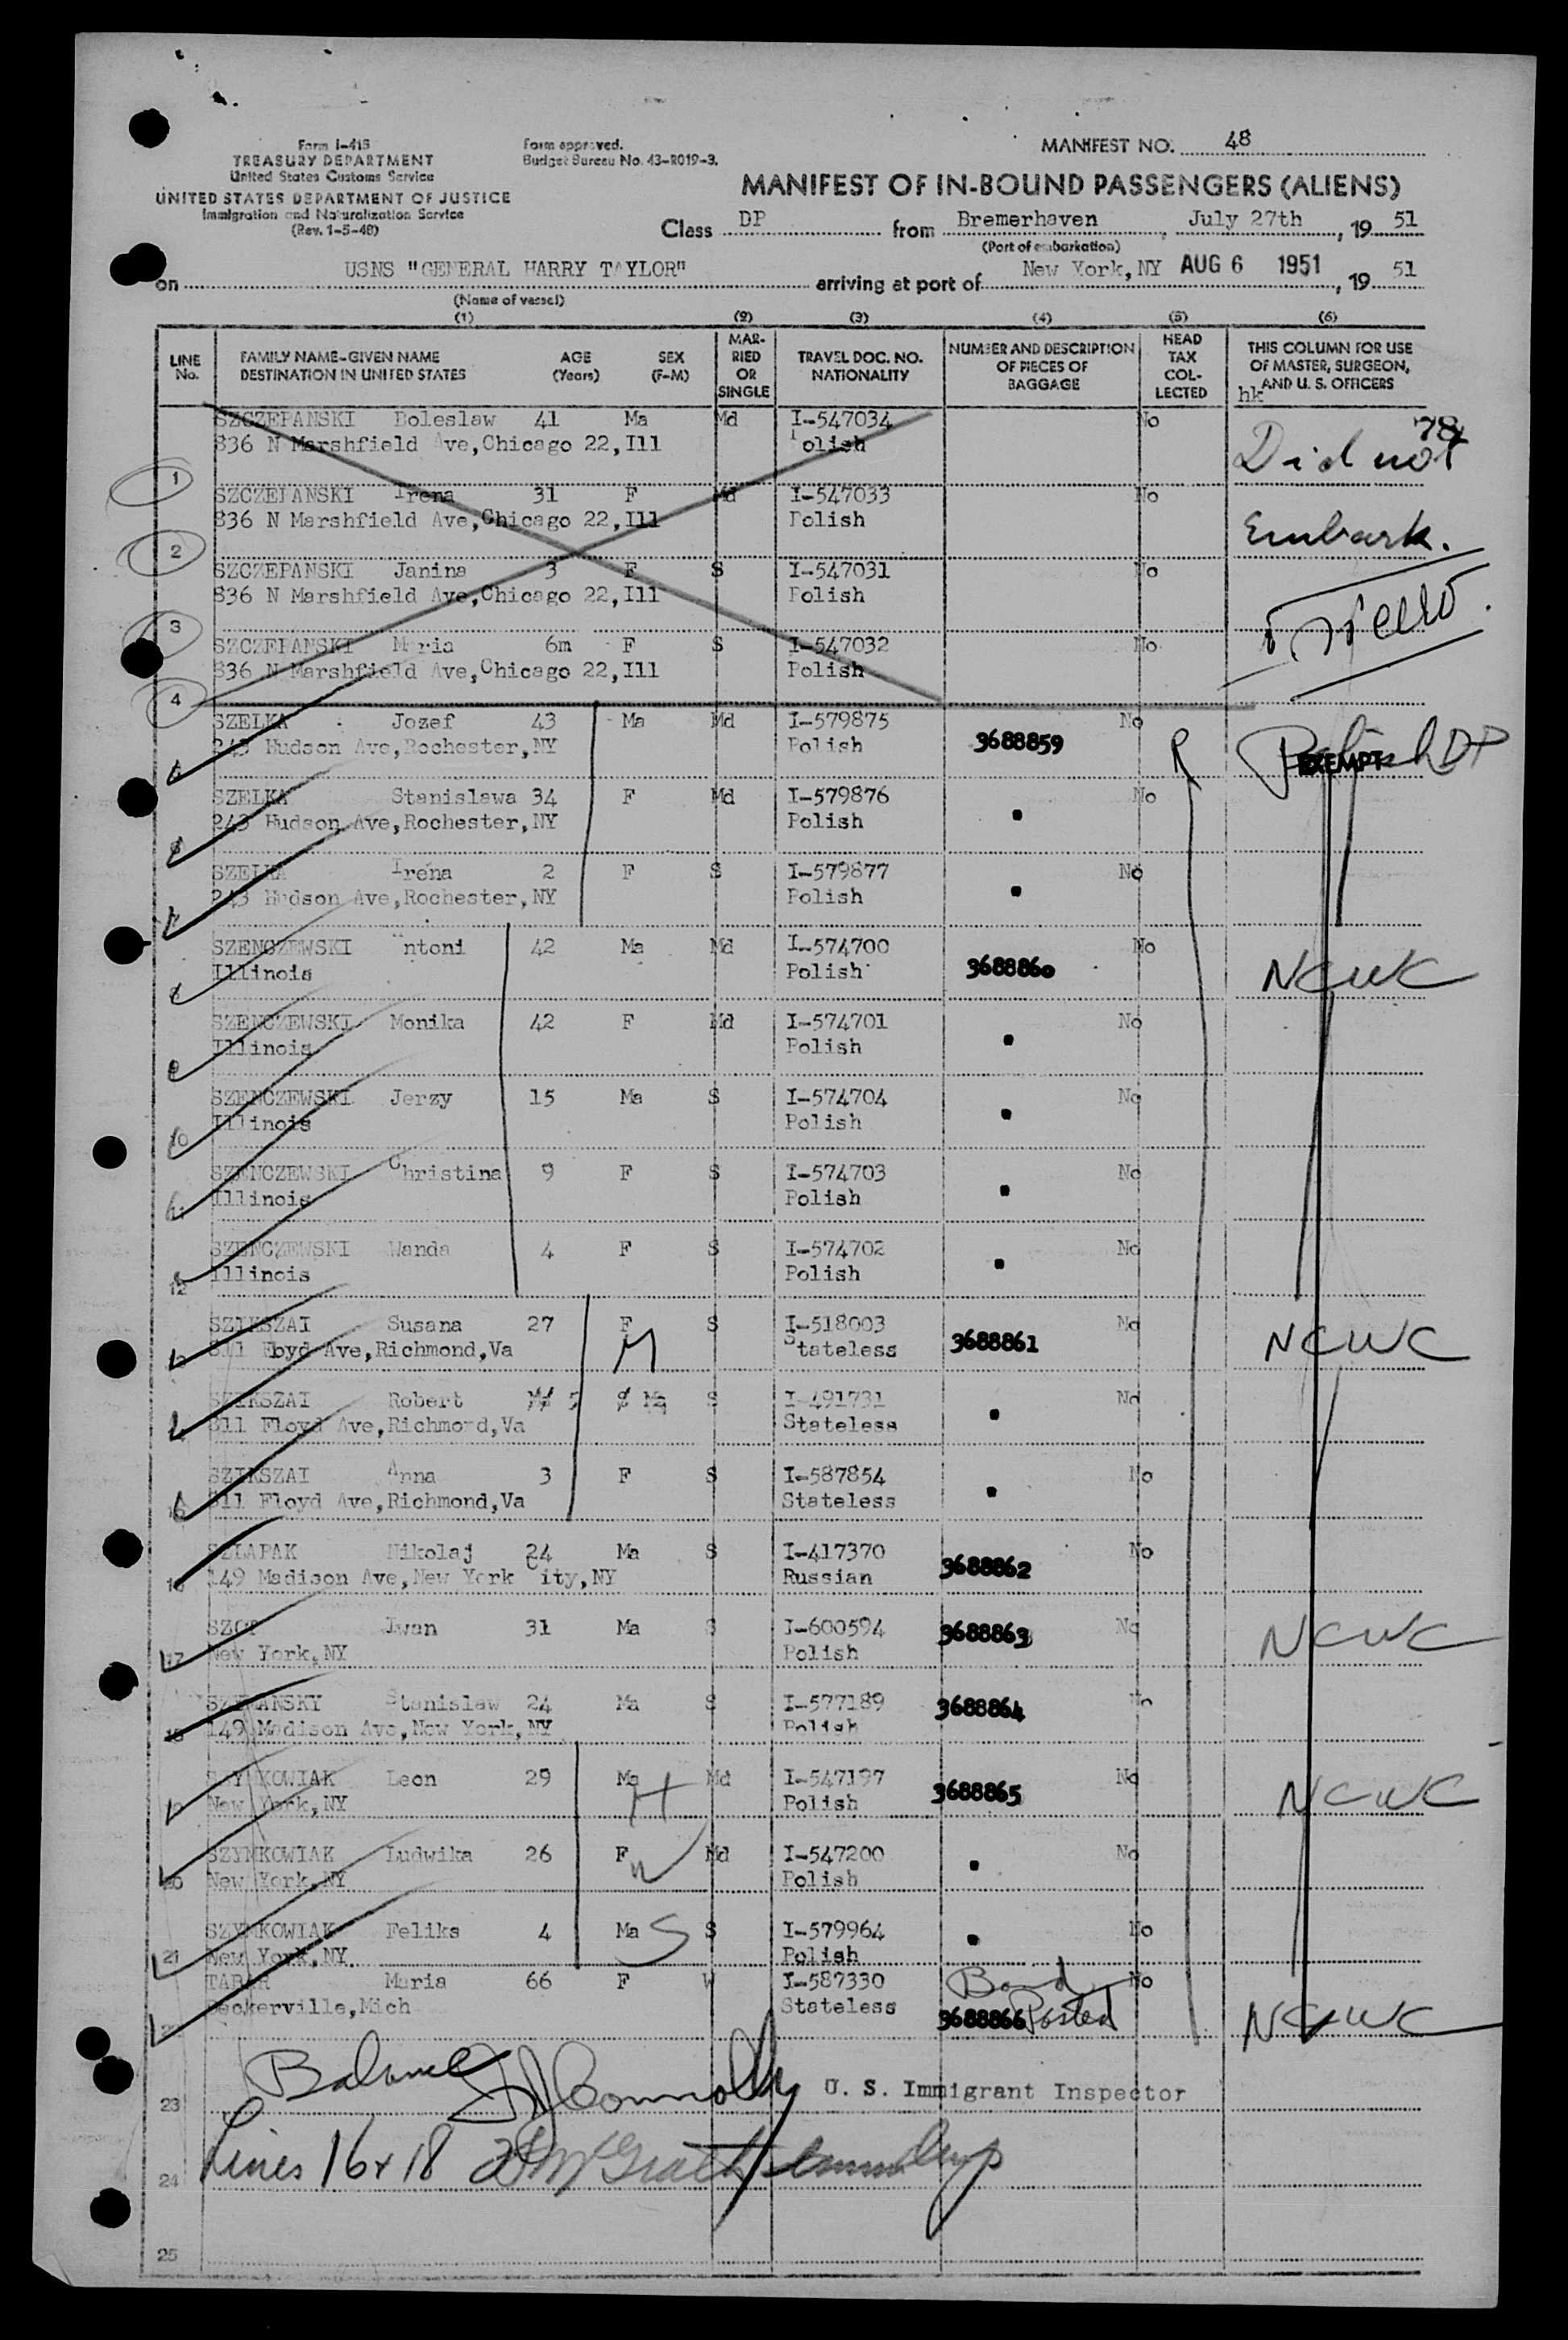 Form I-415
TREASURY DEPARTMENT
United States Customs Service
UNITED STATES DEPARTMENT OF JUSTICE
Immigration and Naturalization Service
(Rev. 1-5-48)
Form approved.
Budget Bureau No. 43-R019-3.
MANIFEST NO. 48
MANIFEST OF IN-BOUND PASSENGERS (ALIENS)
Class DP from Bremerhaven, July 27th, 19 51
(Port of embarkation)
on USNS "GENERAL HARRY TAYLOR" arriving at port of New York, NY AUG 6 1951, 19 51
(Name of vessel)
(1) (2) (3) (4) (5) (6)
LINE No. FAMILY NAME-GIVEN NAME DESTINATION IN UNITED STATES AGE (Years) SEX (F-M) MARRIED OR SINGLE TRAVEL DOC. NO. NATIONALITY NUMBER AND DESCRIPTION OF PIECES OF BAGGAGE HEAD TAX COLLECTED THIS COLUMN FOR USE OF MASTER, SURGEON, AND U. S. OFFICERS
hk
SZCZEPANSKI Boleslaw 41 Ma Md I-547034 No
836 N Marshfield Ave, Chicago 22, Ill Polish Did not
1
SZCZEPANSKI Irena 31 F Md I-547033 No
836 N Marshfield Ave, Chicago 22, Ill Polish Embark.
2
SZCZEPANSKI Janina 3 F S I-547031 No
836 N Marshfield Ave, Chicago 22, Ill Polish
3
SZCZEPANSKI Maria 6m F S I-547032 No
836 N Marshfield Ave, Chicago 22, Ill Polish
4
SZELKA Jozef 43 Ma Md I-579875 No
243 Hudson Ave, Rochester, NY Polish 3688859 R EXEMPT Polish DP
SZELKA Stanislawa 34 F Md I-579876 No
243 Hudson Ave, Rochester, NY Polish
SZELKA Irena 2 F S I-579877 No
243 Hudson Ave, Rochester, NY Polish
SZENCZEWSKI ntoni 42 Ma Md I-574700 No
Illinois Polish 3688860 NCWC
SZENCZEWSKI Monika 42 F Md I-574701 No
Illinois Polish
9
SZENCZEWSKI Jerzy 15 Ma S I-574704 No
Illinois Polish
10
SZENCZEWSKI Christina 9 F S I-574703 No
Illinois Polish
SZENCZEWSKI Wanda 4 F S I-574702 No
Illinois Polish
12
SZIKSZAI Susana 27 F S I-518003 No
811 Floyd Ave, Richmond, Va M Stateless 3688861 NCWC
SZIKSZAI Robert 5 Ma S I-491731 No
811 Floyd Ave, Richmond, Va Stateless
SZIKSZAI Anna 3 F S I-587854 No
811 Floyd Ave, Richmond, Va Stateless
SZLAPAK Nikolaj 24 Ma S I-417370 No
149 Madison Ave, New York City, NY Russian 3688862
16
SZOT Jwan 31 Ma S I-600594 No
New York, NY Polish 3688863 NCWC
17
Stanislaw 24 Ma S I-577189 No
149 Madison Ave, New York, NY Polish 3688864
18
SZYMKOWIAK Leon 29 Ma Md I-547197 No
New York, NY H Polish 3688865 NCWC
SZYMKOWIAK Ludwika 26 F Md I-547200 No
New York, NY W Polish
20
SZYMKOWIAK Feliks 4 Ma S S I-579964 No
New York, NY Polish
21
Maria 66 F W I-587330 Bond No
Deckerville, Mich Stateless 3688866 Posted NCWC
Balance Connolly U. S. Immigrant Inspector
23
Lines 16 + 18 McGrath Imm Insp
24
25